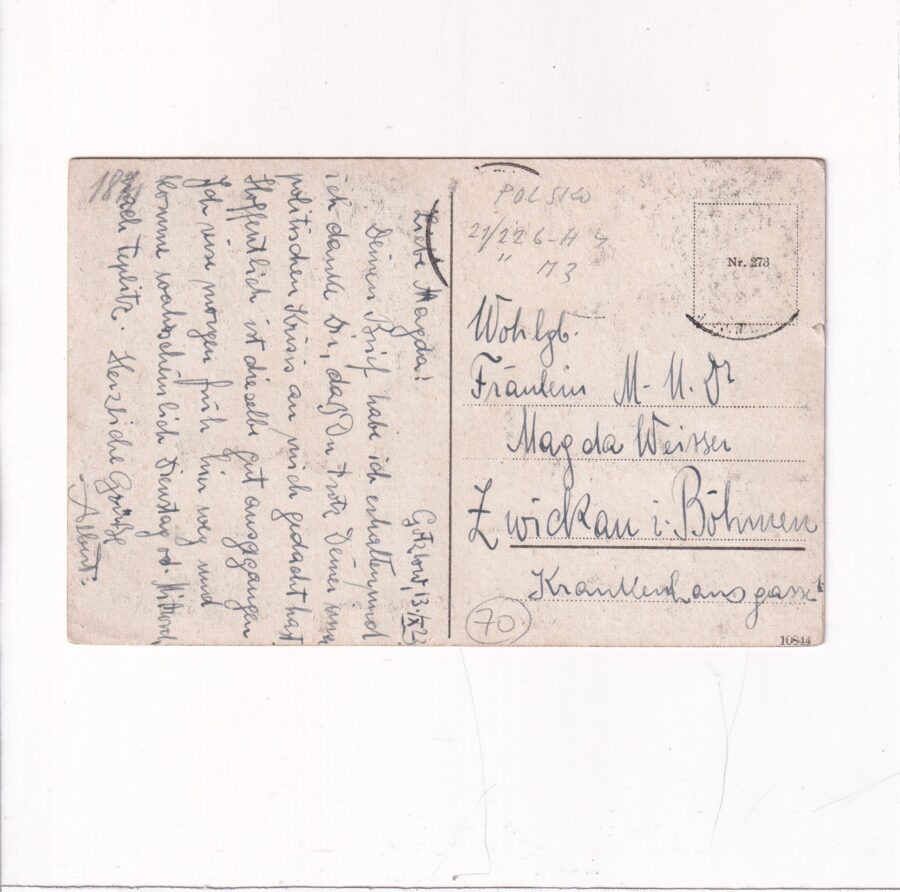 Liebe Magda!
Gotzlow, 13./X 23
Deinen Brief habe ich erhalten und
ich danke Dir, daß Du trotz Deiner
politischen Krisis an mich gedacht hast
Hoffentlich ist dieselbe gut ausgegangen
Ich reise morgen früh hier weg und
komme wahrscheinlich Dienstag od. Mittwoch
nach Teplitz. Herzliche Grüße
Albert.
POLSKO
21/22 6-H 4
" M 3
Nr. 273
Wohlgb.
Fräulein M. U. Dr
Magda Weisser
Zwickau i. Böhmen
Krankenhausgasse
70
10844